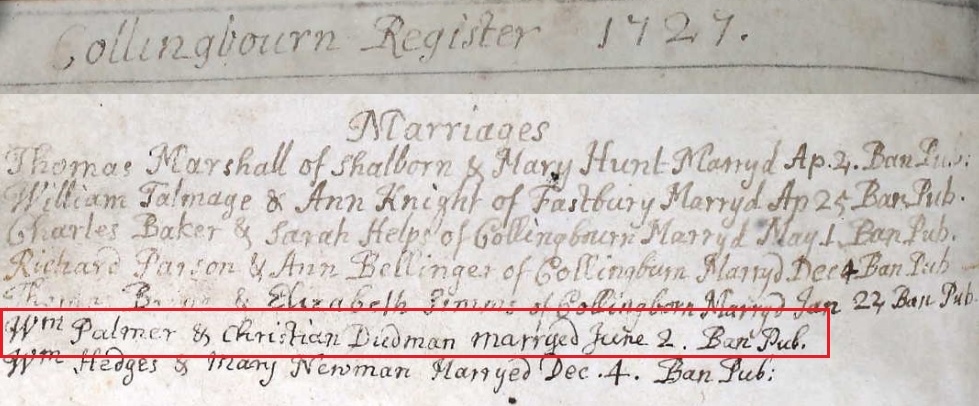 Collingbourn Register 1727.
Marriages
Thomas Marshall of Shalborn & Mary Hunt Marryd Ap. 2. Ban Pub.
William Talmage & Ann Knight of Eastbury Marryd Ap 25 Ban Pub.
Charles Baker & Sarah Helps of Collingbourn Marryd May 1 Ban Pub.
Richard Parson & Ann Bellinger of Collingburn Marryd Dec 4 Ban Pub
& Elizabeth of Collingborn Marryd Jan 22 Ban Pub
Wm Palmer & Christian Dudman marryed June 2. Ban Pub.
Wm Hedges & Mary Newman Marryed Dec. 4. Ban Pub: